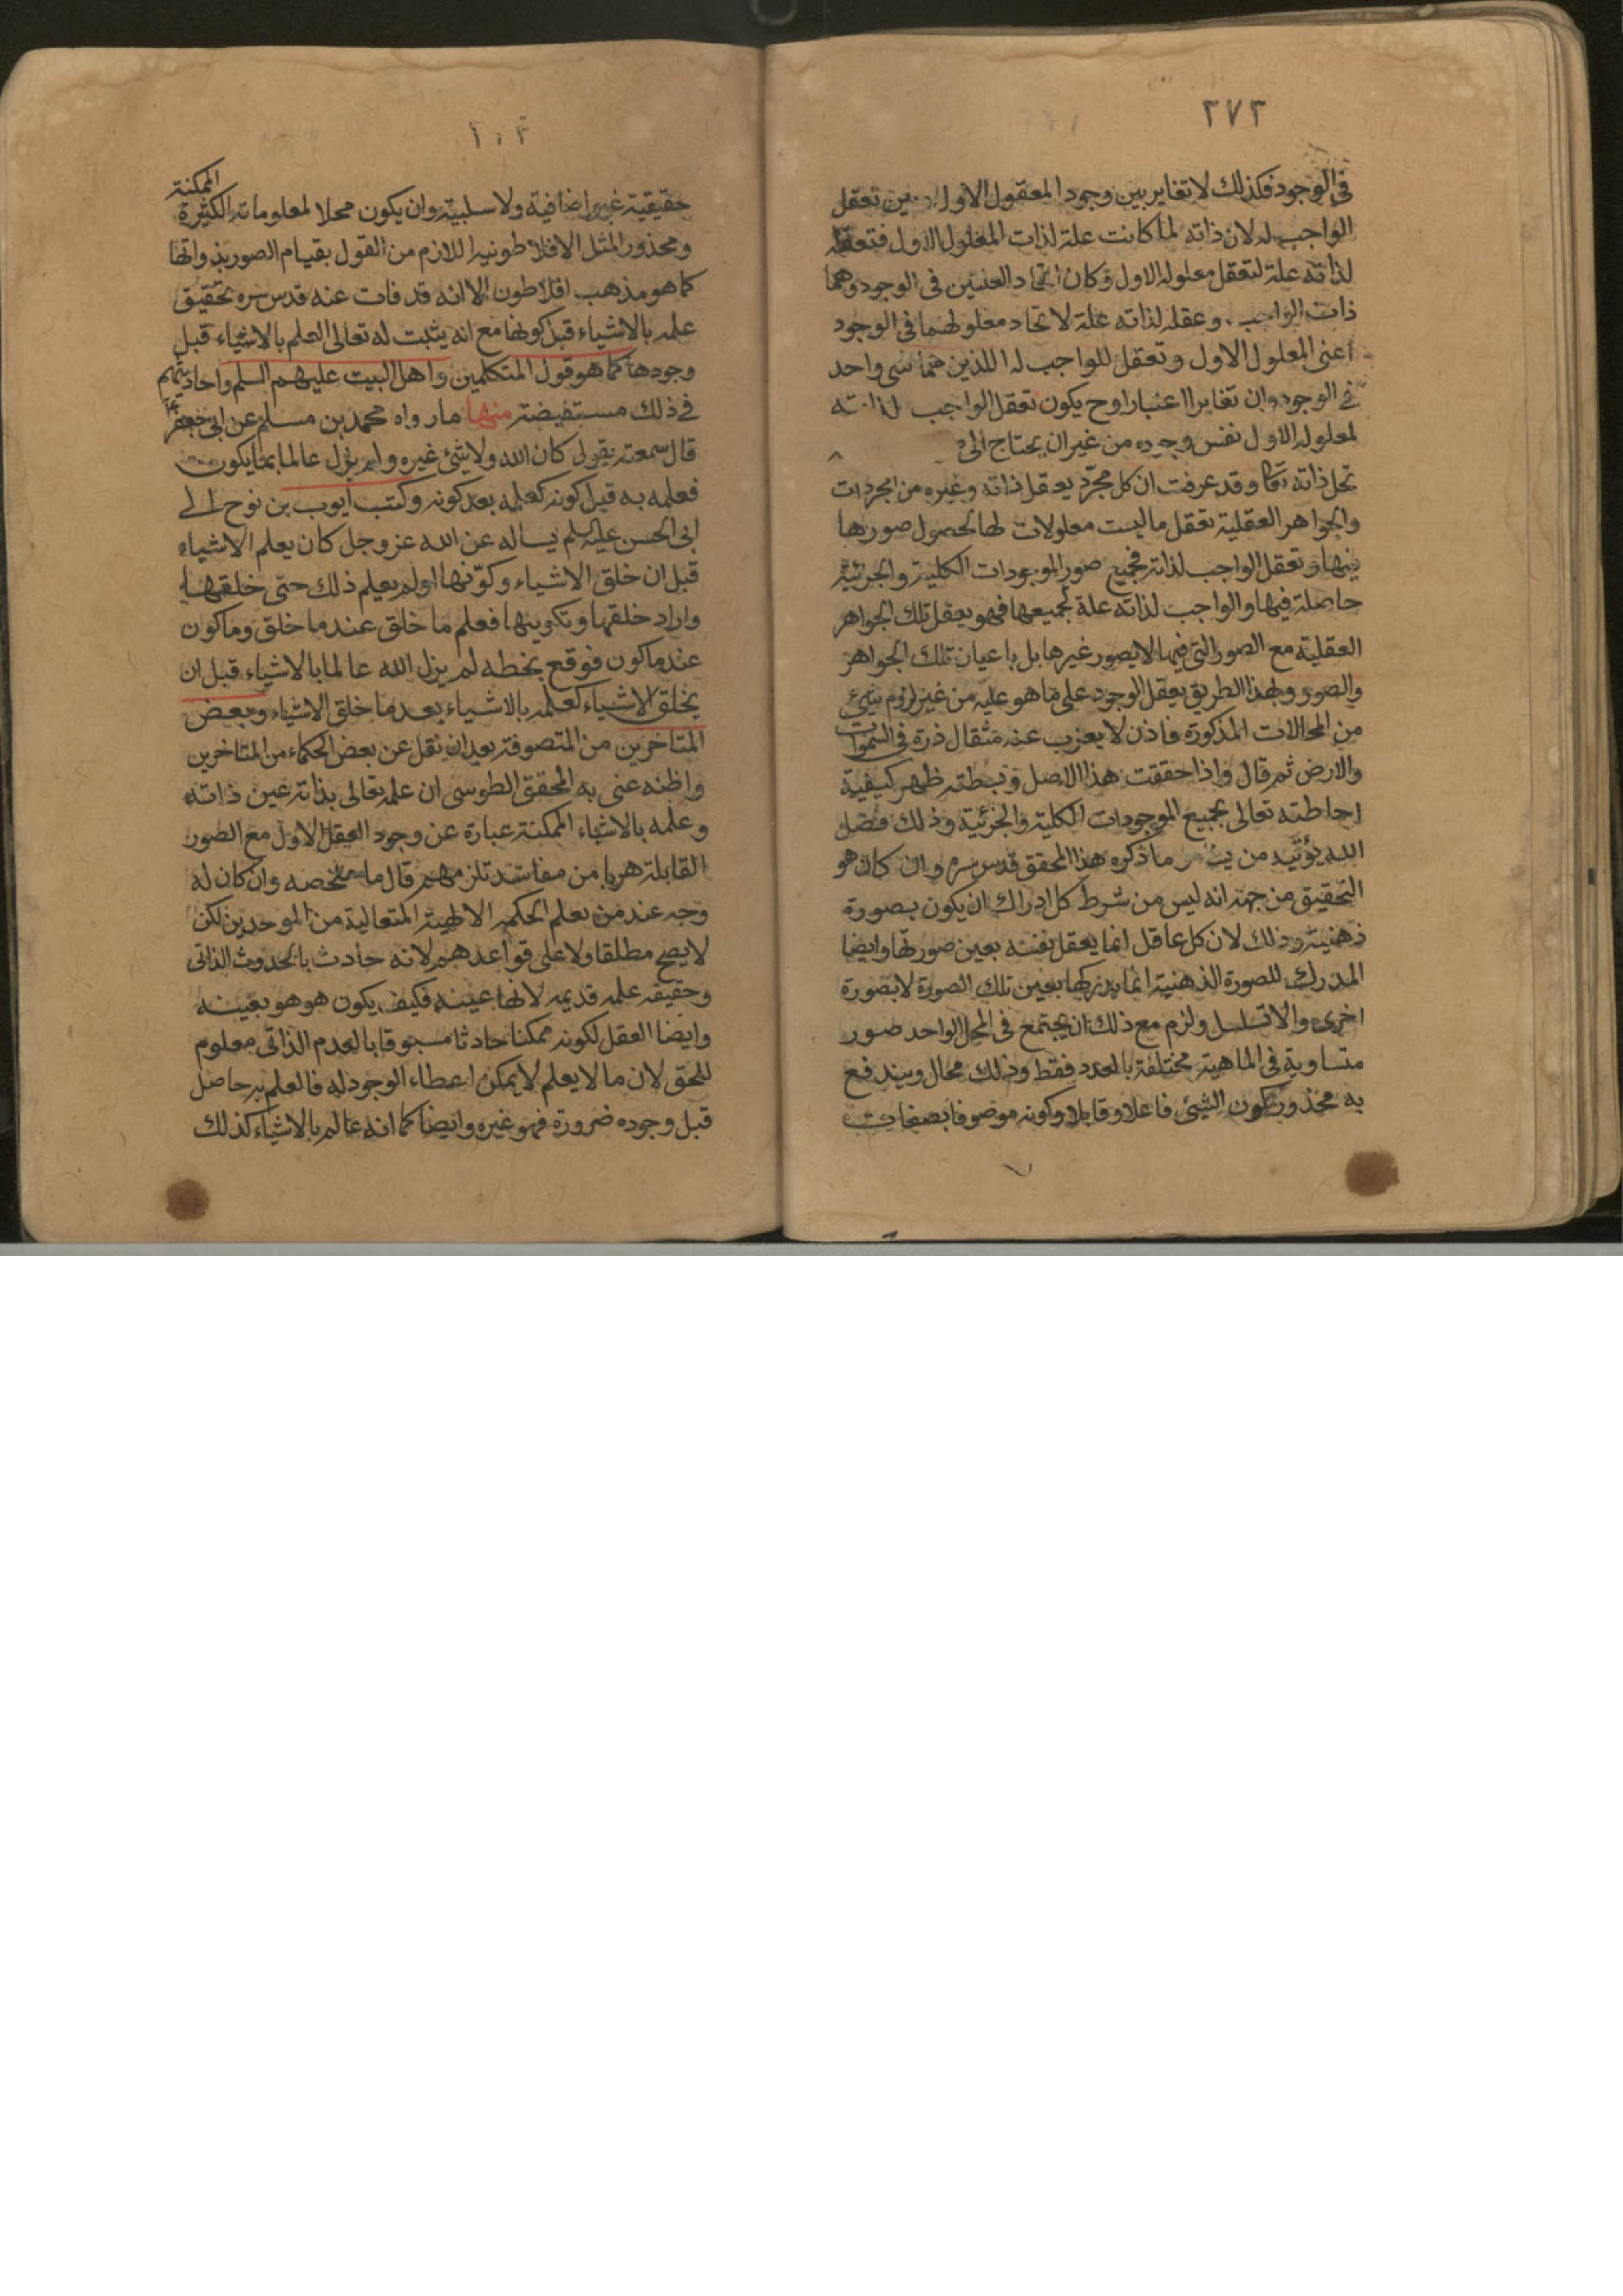 ٢٧٣
في الوجود فكذلك لا تغاير بين وجود المعقول الاول وبين تعقل
الواجب له لان ذاته لما كانت علة لذات المعلول الاول فتعقله
لذاته علة لتعقل معلوله الاول وكان اتحاد العلتين في الوجود وهما
ذات الواجب وعقله لذاته علة لاتحاد معلولهما في الوجود
اعنى المعلول الاول وتعقل للواجب له اللذين هما شى واحد
في الوجود وان تغايرا اعتبارا وح يكون تعقل الواجب لذاته
لمعلوله الاول نفس وجوده من غير ان يحتاج الى
تحل ذاته تعا وقد عرفت ان كل مجرد يعقل ذاته وغيره من المجردات
والجواهر العقلية تعقل ما ليست معلولات لها لحصول صورها
فيها وتعقل الواجب لذاته فجميع صور الموجودات الكلية والجزئية
حاصلة فيها والواجب لذاته علة لجميعها فهو يعقل تلك الجواهر
العقلية مع الصور التي فيها لا بصور غيرها بل باعيان تلك الجواهر
والصور وبهذا الطريق يعقل الوجود على ما هو عليه من غير لزوم شئ
من المحالات المذكورة فاذن لا يعزب عنه مثقال ذرة في السموات
والارض ثم قال واذا حققت هذا الاصل وبسطته ظهر كيفية
احاطته تعالى بجميع الموجودات الكلية والجزئية وذلك فضل
الله يؤتيه من يشاء ما ذكره هذا المحقق قدس سره وان كان هو
التحقيق من جهة انه ليس من شرط كل ادراك ان يكون بصورة
ذهنية وذلك لان كل عاقل انما يعقل نفسه بعين صورتها وايضا
المدرك للصورة الذهنية انما يدركها بعين تلك الصورة لا بصورة
اخرى والا تسلسل ولزم مع ذلك ان يجتمع في المحل الواحد صور
متساوية في الماهية مختلفة بالعدد فقط وذلك محال ويندفع
به محذور كون الشئ فاعلا وقابلا وكونه موصوفا بصفات
حقيقية غير اضافية ولا سلبية وان يكون محلا لمعلوماته الكثيرة الممكنة
ومحذور المثل الافلاطونية اللازم من القول بقيام الصور بذواتها
كما هو مذهب افلاطون الا انه قد فات عنه قدس سره تحقيق
علمه بالاشياء قبل كونها مع انه يثبت له تعالى العلم بالاشياء قبل
وجودها كما هو قول المتكلمين واهل البيت عليهم السلم واحاديثهم
في ذلك مستفيضة منها ما رواه محمد بن مسلم عن ابى جعفر ع
قال سمعته يقول كان الله ولا شئ غيره ولم يزل عالما بما يكون
فعلمه به قبل كونه كعلمه بعد كونه وكتب ايوب بن نوح الى
ابى الحسن عليه السلم يساله عن الله عز وجل كان يعلم الاشياء
قبل ان خلق الاشياء وكونها اولم يعلم ذلك حتى خلقها
واراد خلقها وتكوينها فعلم ما خلق عندما خلق وما كون
عندما كون فوقع بخطه لم يزل الله عالما بالاشياء قبل ان
يخلق الاشياء كعلمه بالاشياء بعد ما خلق الاشياء وبعض
المتاخرين من المتصوفة بعد ان نقل عن بعض الحكماء من المتاخرين
واظنه عنى به المحقق الطوسى ان علمه تعالى بذاته عين ذاته
وعلمه بالاشياء الممكنة عبارة عن وجود العقل الاول مع الصور
القابلة هربا من مفاسد تلزمهم قال ما ملخصه وان كان له
وجه عند من يعلم الحكمة الالهية المتعالية من الموحدين لكن
لا يصح مطلقا ولا على قواعدهم لانه حادث بالحدوث الذاتى
وحقيقة علمه قديمة لانها عينه فكيف يكون هو هو بعينه
وايضا العقل لكونه ممكنا حادثا مسبوقا بالعدم الذاتى معلوم
للحق لان ما لا يعلم لا يمكن اعطاء الوجود له فالعلم به حاصل
قبل وجوده ضرورة فهو غيره وايضا كما انه عالم بالاشياء كذلك